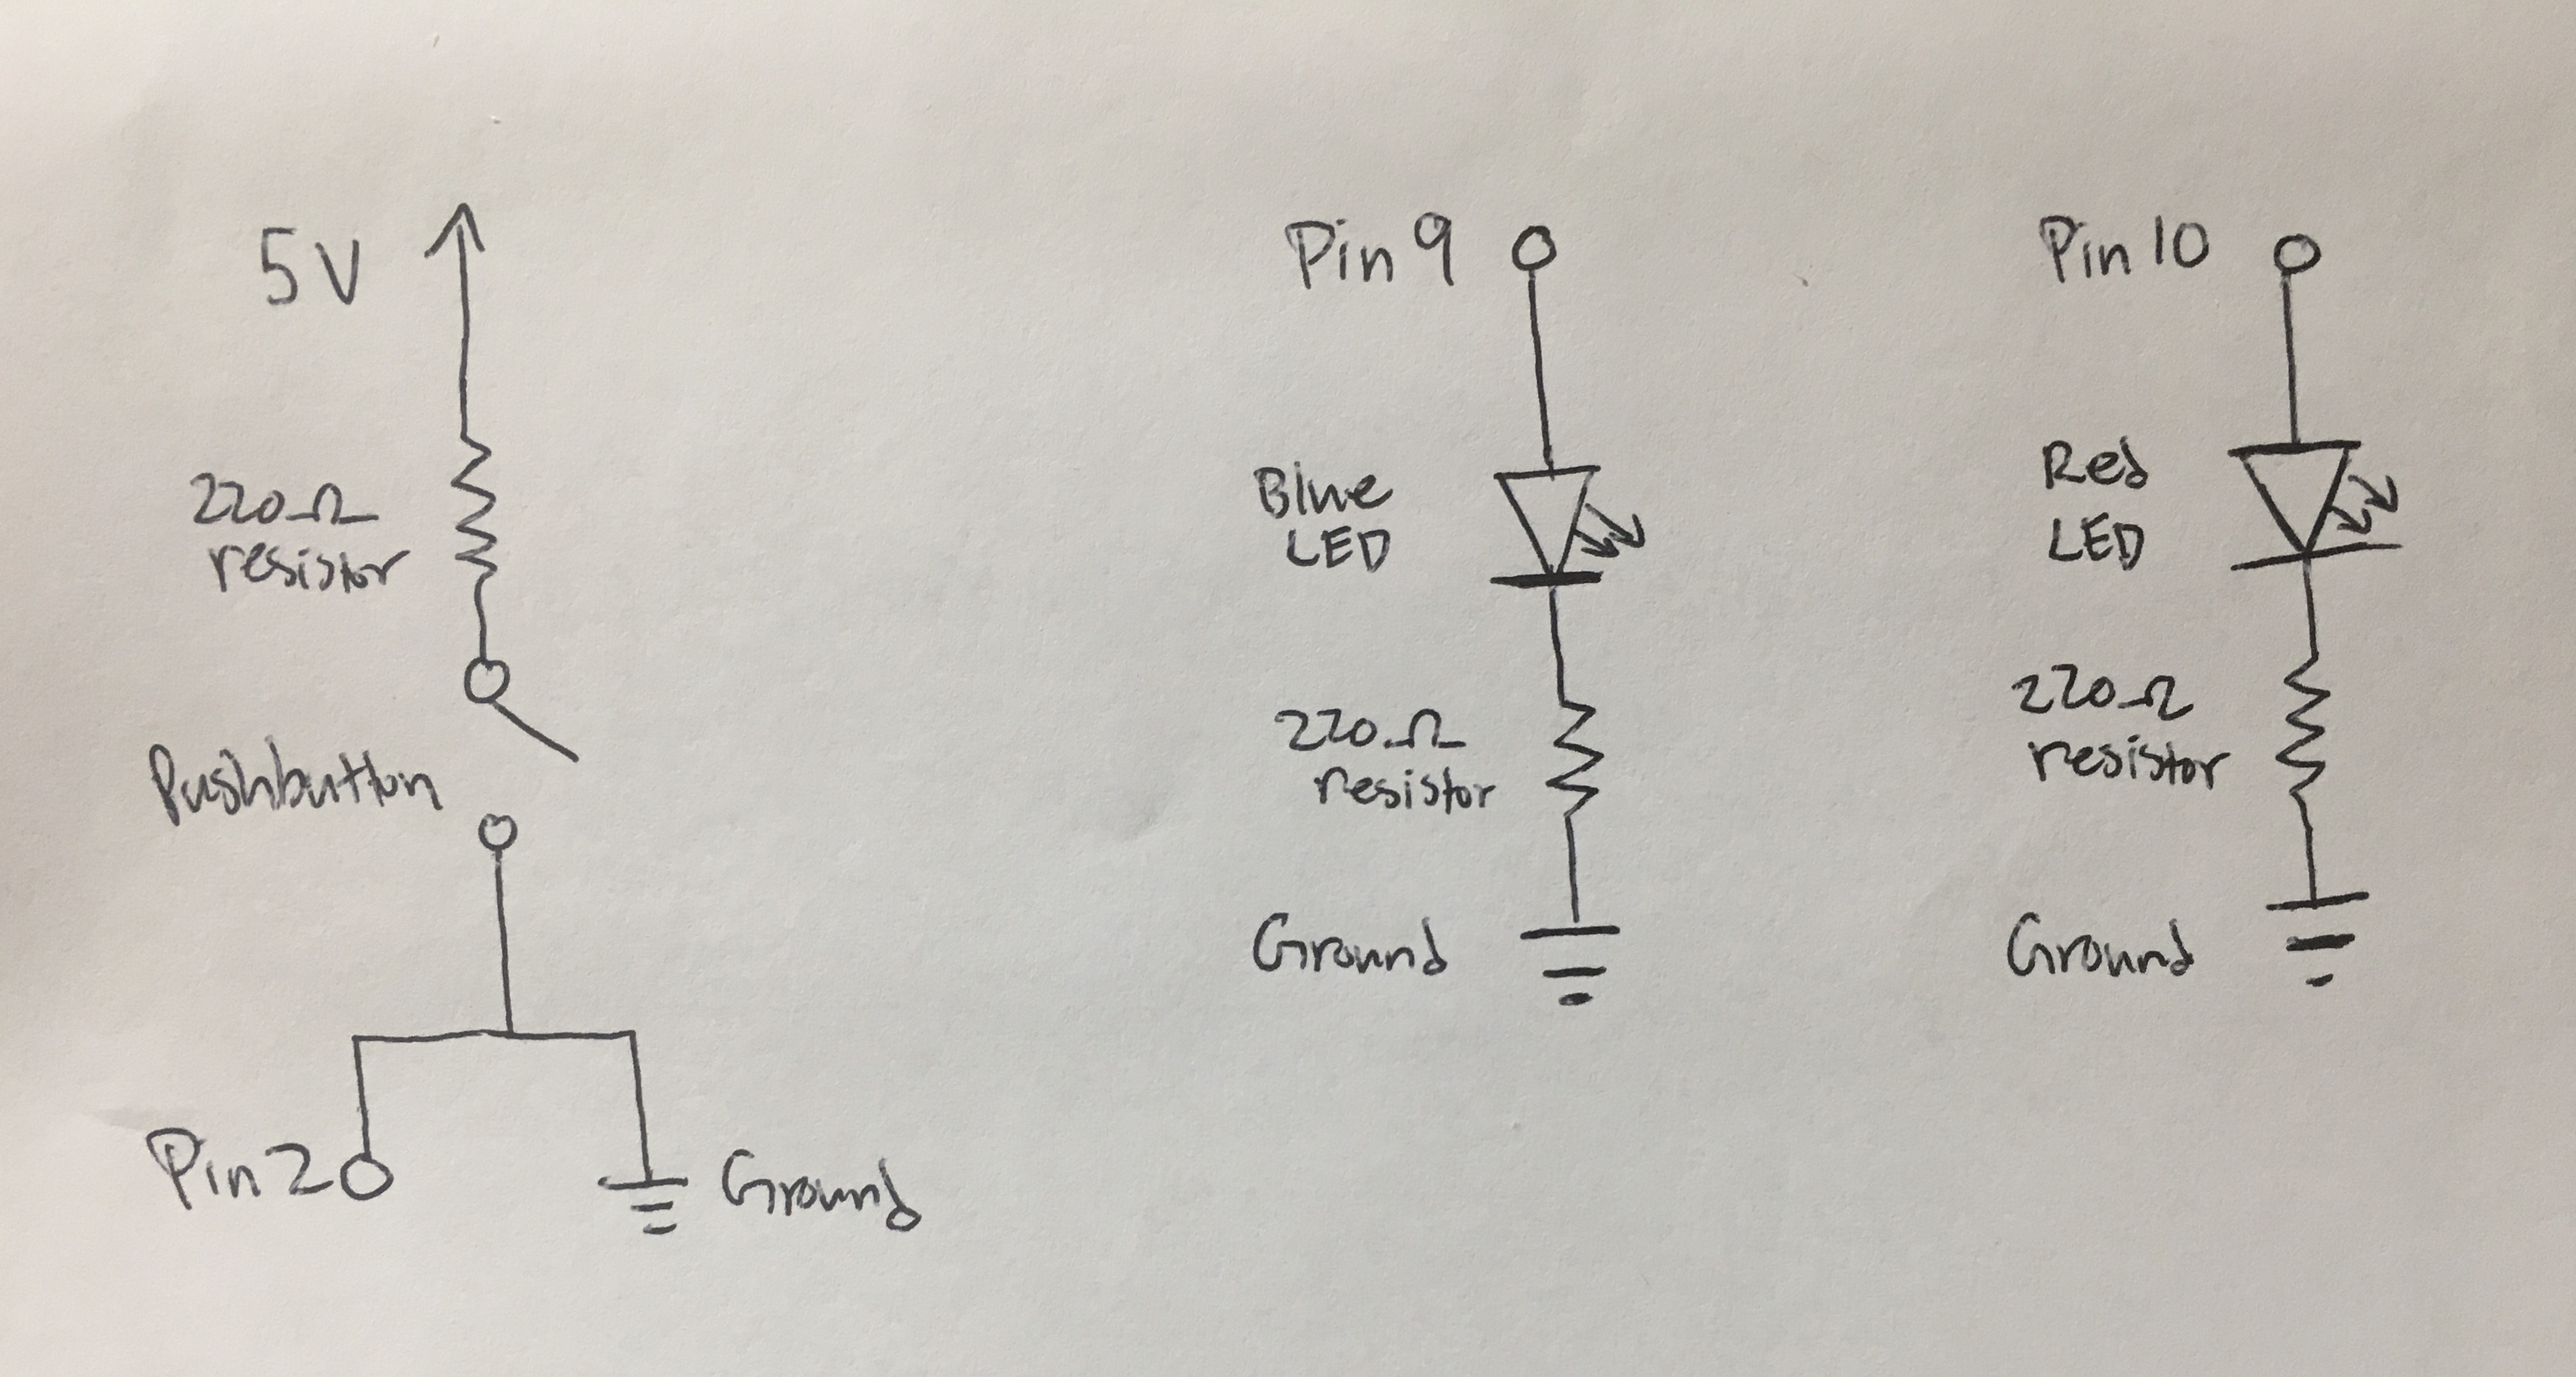 5V
220Ω
resistor
Pushbutton
Pin 2
Ground
Pin 9
Blue
LED
220Ω
resistor
Ground
Pin 10
Red
LED
220Ω
resistor
Ground